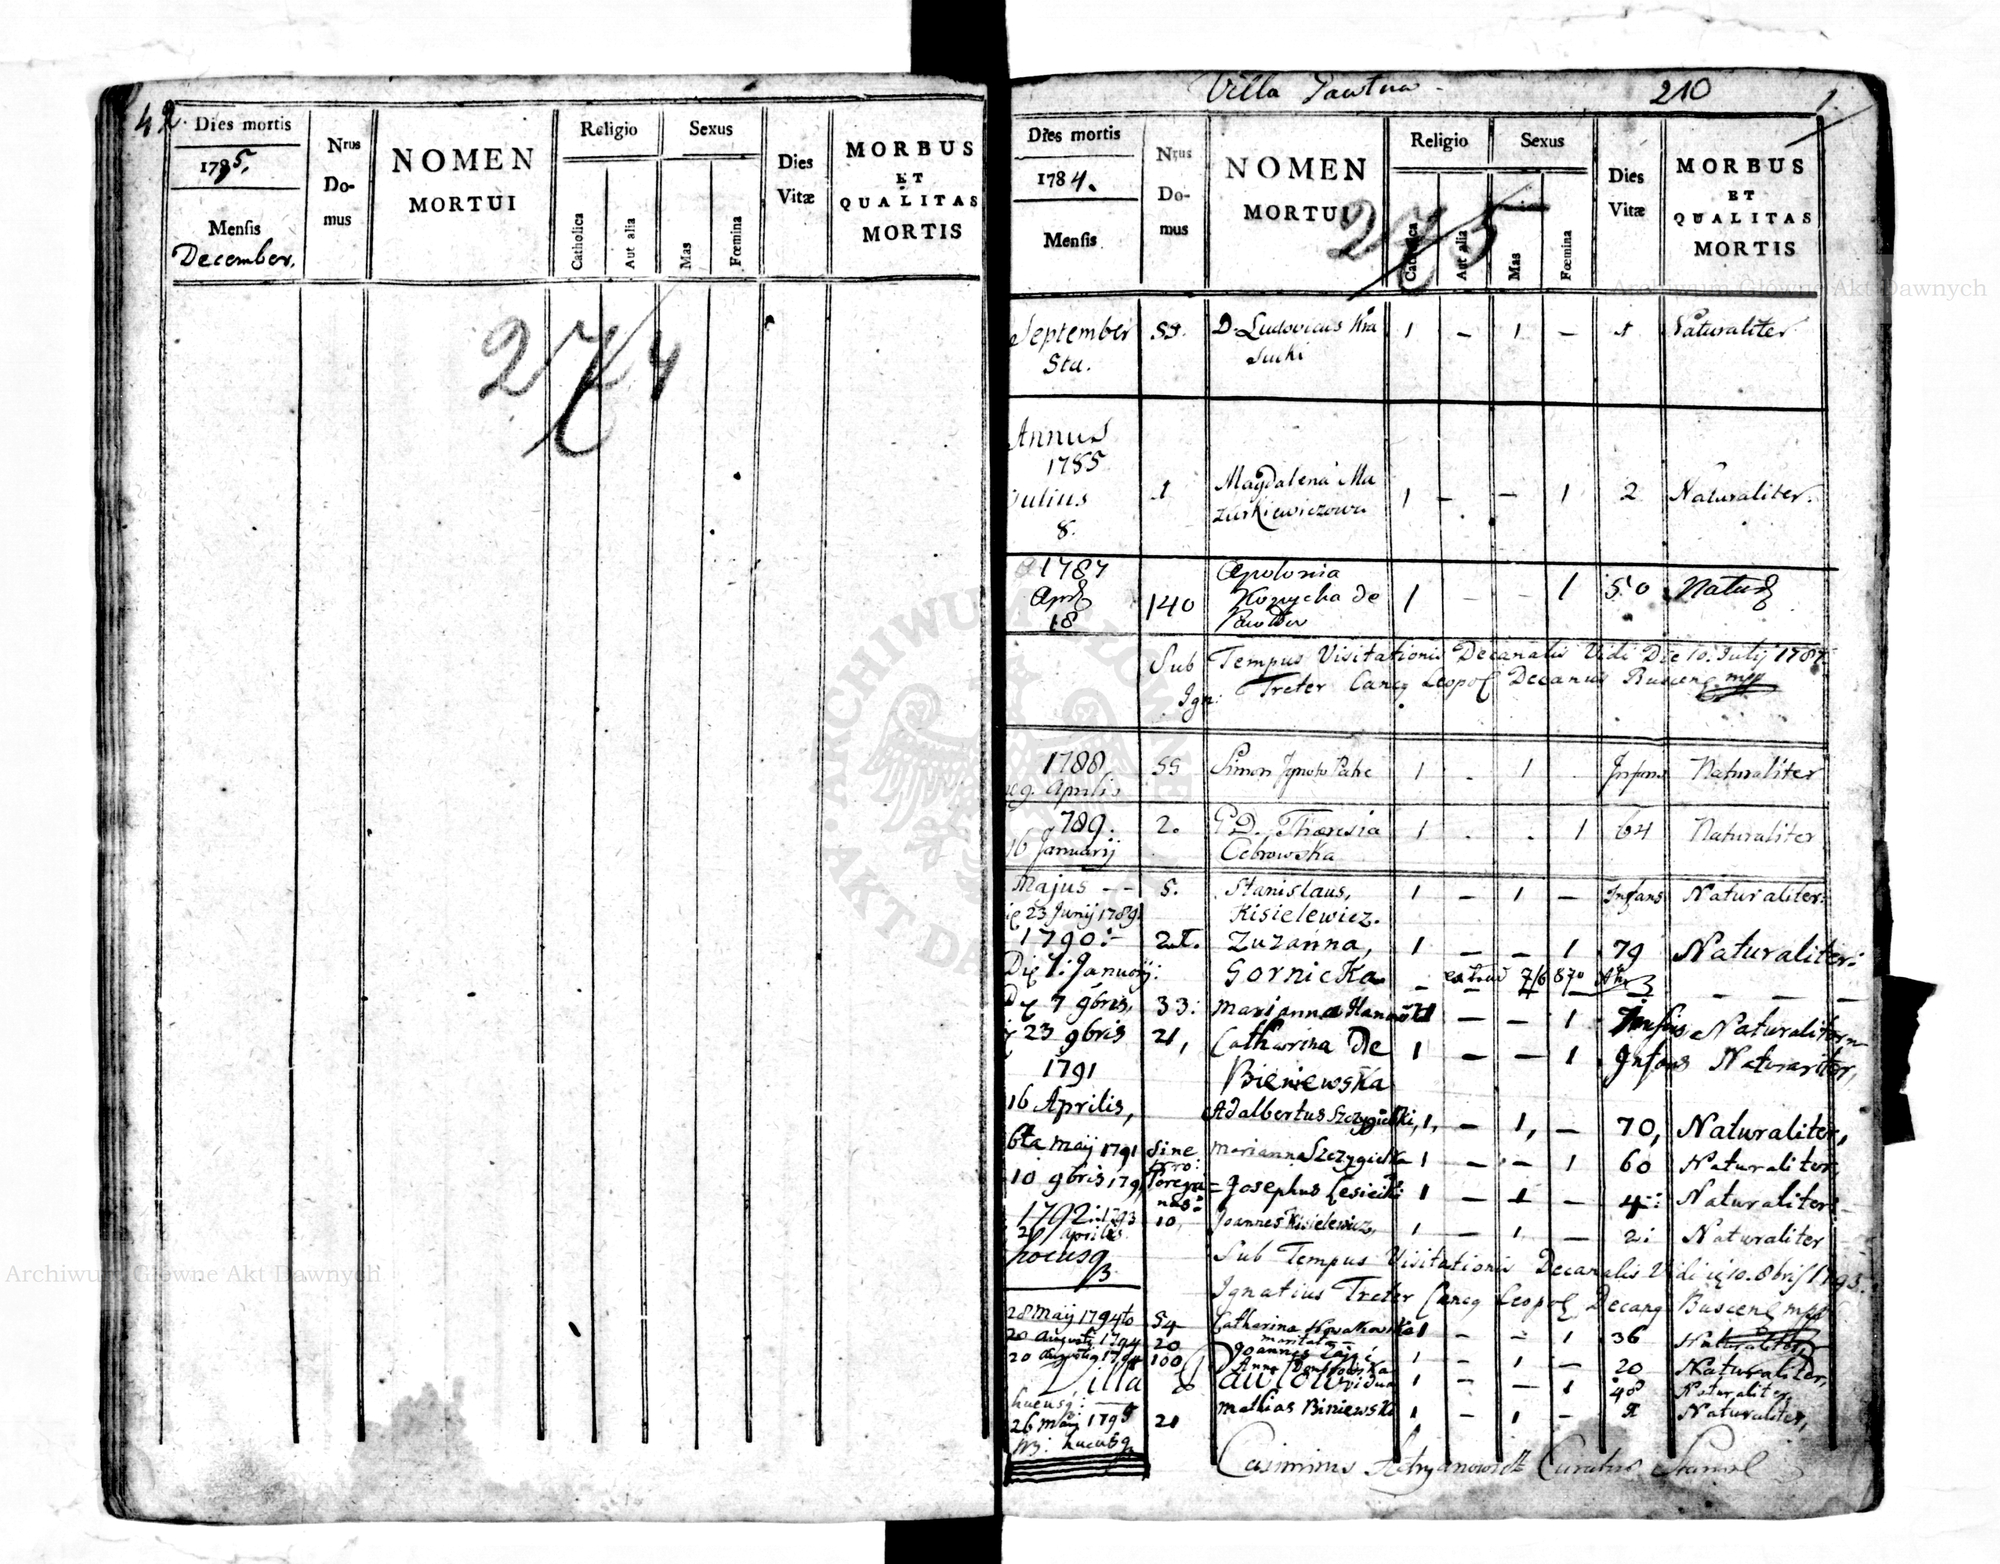 42.
Dies mortis
1785.
Mensis
December.
Nrus Domus
NOMEN
MORTUI
Religio
Catholica
Aut alia
Sexus
Mas
Fœmina
Dies Vitæ
MORBUS
ET
QUALITAS
MORTIS
274
Villa
210
1.
Dies mortis
1784.
Mensis
Nrus Domus
NOMEN
MORTUI
275
Religio
Catholica
Aut alia
Sexus
Mas
Fœmina
Dies Vitæ
MORBUS
ET
QUALITAS
MORTIS
September 55. D. Ludovicus Kra 1 – 1 – 1 Naturaliter
5ta. sucki
Annus
1785
Julius 1 Magdalena Ma 1 – – 1 2 Naturaliter.
8. zurkiewiczowa
1787 Apolonia
140 de 1 – – 1 50
18
Sub Tempus Visitationis Decanalis Vidi Die 10. Julij 1787
Ign: Treter Cancq Leopol Decanus Buscen mpp
1788 55 Simon Ignoto Patre 1 . 1 . Infans Naturaliter
Aprilis
789. 2. G D. Theresia 1 . . 1 64 Naturaliter
16 Januarij Cebrowska
Majus -- 5. Stanislaus, 1 – 1 – Infans Naturaliter:
23 Junij 1789. Kisielewicz.
1790:- Zuzanna, 1 – – 1 79 Naturaliter:
Die 1: Januarij: Gornicka
7 9bris, 33: Marianna 1 – – 1 Infans Naturaliter
23 9bris 21, Catharina De 1 – – 1 Infans Naturariter,
1791 Bieniewska
16 Aprilis, Adalbertus Szczygielski, 1, – 1, – 70, Naturaliter,
6ta Maij 1791 Sine Marianna Szczygielska 1 – – 1 60 Naturaliter,
10 9bris 1791 Josephus Lesiecki 1 – 1 – 4: Naturaliter:
1792: 1793 10, Joannes Kisielewicz, 1 – 1 – 2: Naturaliter
Aprilis
hocusq
Sub Tempus Visitationis Decanalis Vidi 10. 8bris 1793.
Ignatius Treter Cancq Leopol Decang Buscen mpp
28 Maij 1794to 54 Catharina Nowakowska 1 – – 1 36 Naturaliter,
20 Augusti 1794 20 Joannes 1 – 1 – 20 Naturaliter,
20 Augusti 1794 100 Anna vidua 1 – – 1 40 Naturaliter,
Villa
hucusq:
26 Maij 1795 21 Mathias Biniewski 1 – 1 – 2 Naturaliter,
hucusq
Casimirus Curatus
Archiwum Główne Akt Dawnych
Archiwum Główne Akt Dawnych
ARCHIWUM GŁÓWNE AKT DAWNYCH